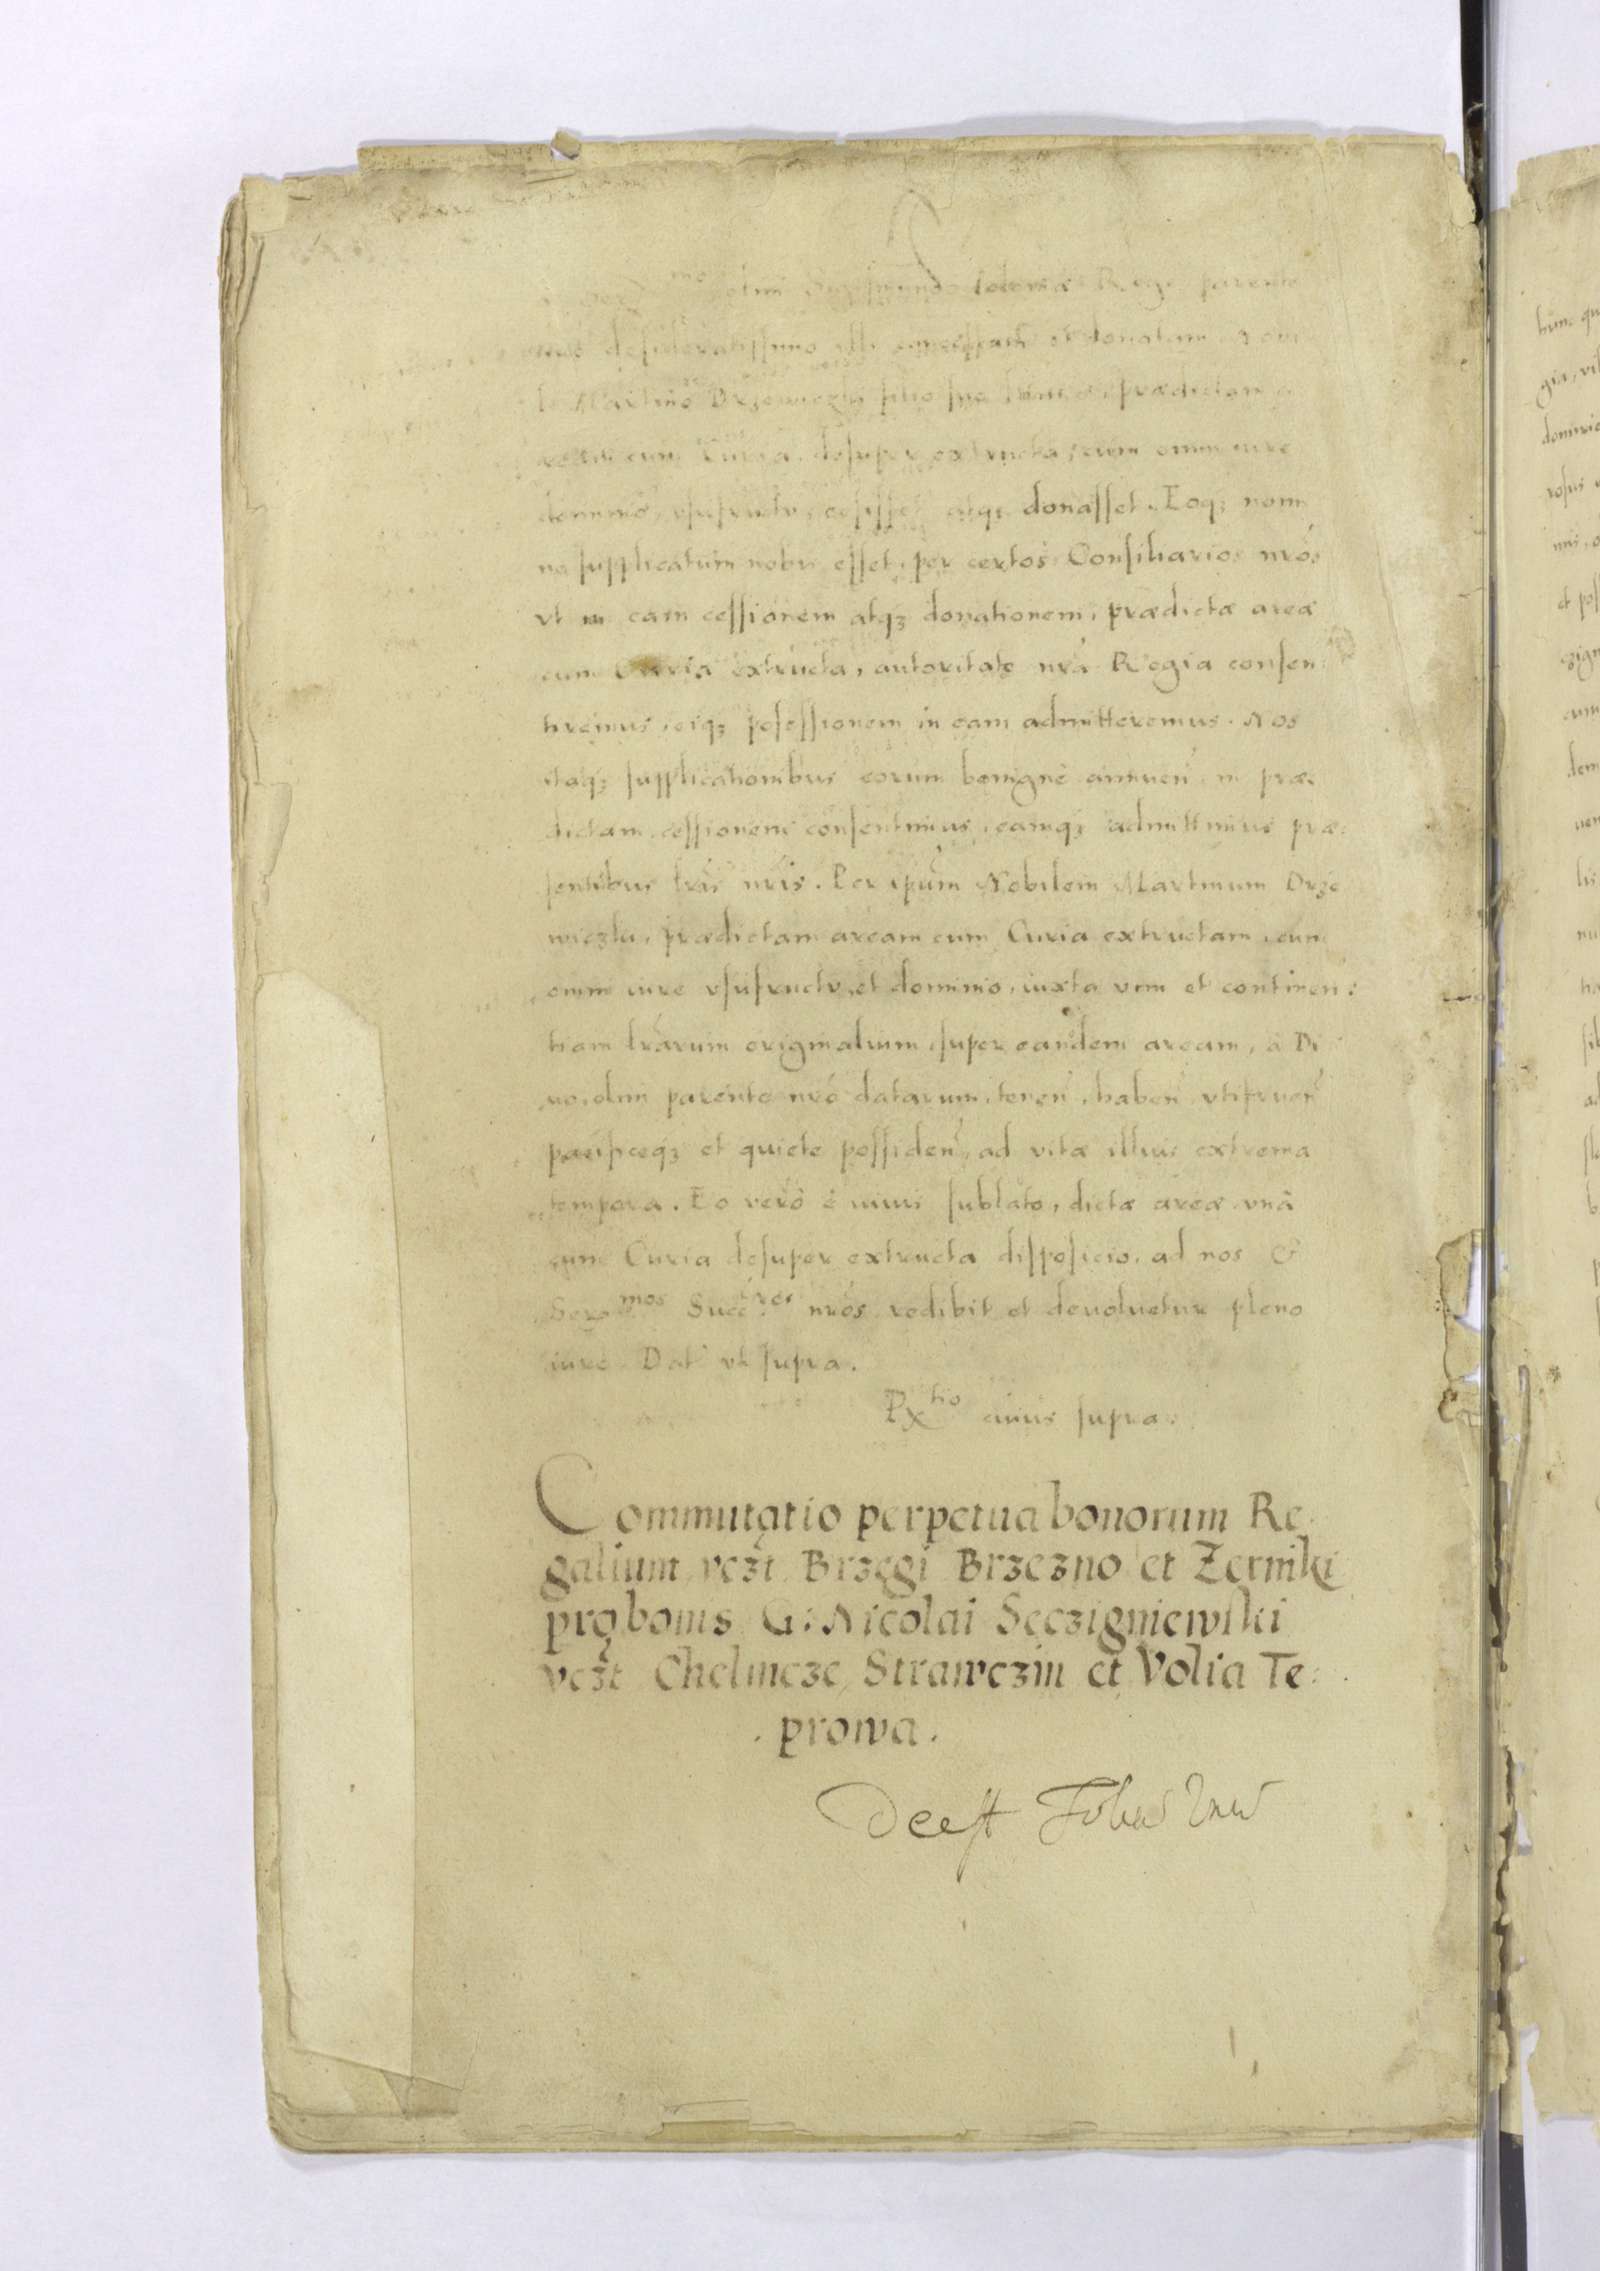 olim Sigismundo Poloniæ Rege parente
desideratissimo illi concessam et donatam
Martino Drzewiczky filio suo prædictam
cum Curia desuper extructa, cum omni iure
dominio, vsufructu, cesisset atq₃ donasset. Eoq₃ nomi
ne supplicatum nobis esset, per certos Consiliarios nrós
vt in eam cessionem atq₃ donationem, prædictæ areæ
cum Curia extructa, autoritate nrâ Regia consen:
tiremus, eiq₃ posessionem in eam admitteremus. Nos
itaq₃ supplicationibus eorum benigne annuen̄ in præ:
dictam cessionem consentimus, eamq₃ admittimus præ:
sentibus lrís nrís. Per ipūm Nobilem Martinum Drze
wiczky, prædictam aream cum Curia extructam, cum
omni iure vsufructu, et dominio, iuxta vim et continen:
tiam lrárum originalium super eandem aream, à Di
uo olim parente nró datarum, tenen̄, haben̄ vtifruen̄
pacificeq₃ et quiete possiden̄, ad vitæ illius extrema
tempora. Eo verò è viuis sublato, dictæ areæ vnâ
cum Curia desuper extructa disposicio, ad nos &
Sermos Succres nrós redibit et deuoluetur pleno
iure. Dat̄ vt supra.
Rxtio cuius supra.
Commutatio perpetua bonorum Re
galium vcz̄t Brzegi Brzezno et Zerniki
pro bonis G: Nicolai Seczigniewski
vcz̄t Chelmcze, Strawczin et Volia Te:
. prowa .
Deest